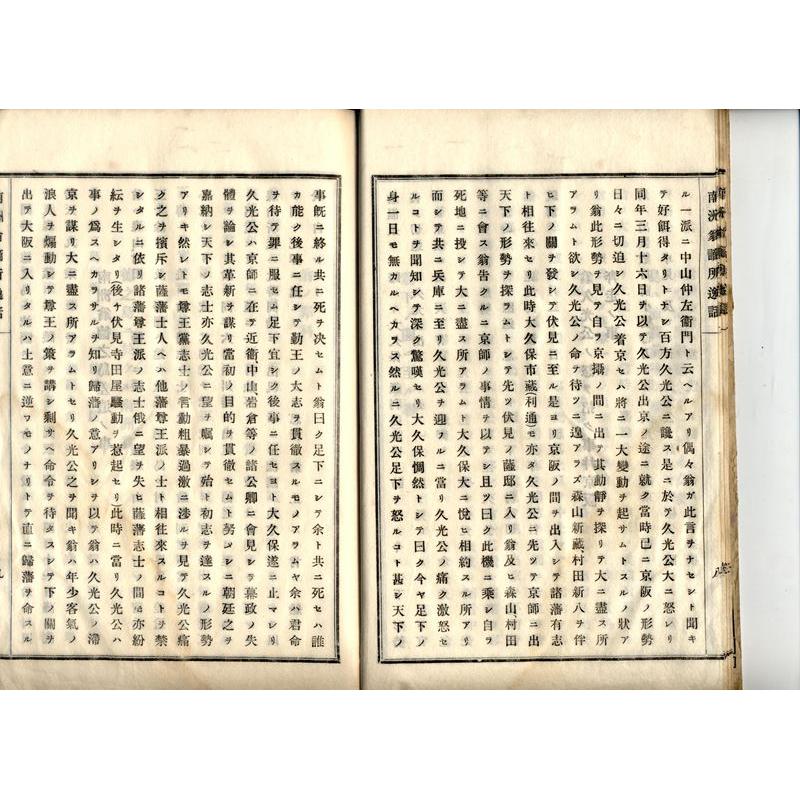 南洲翁謫所逸話
ル一派ニ中山仲左衞門ト云ヘルアリ偶々翁ガ此言ヲナセシト聞キ
テ好餌得タリトナシ百方久光公ニ讒ス是ニ於テ久光公大ニ怒レリ
同年三月十六日ヲ以テ久光公出京ノ途ニ就ク當時已ニ京阪ノ形勢
日々ニ切迫シ久光公着京セハ將ニ一大變動ヲ起サムトスルノ狀ア
リ翁此形勢ヲ見テ自ラ京攝ノ間ニ出テ其動靜ヲ探リテ大ニ盡ス所
アラムト欲シ久光公ノ命ヲ待ツニ遑アラズ森山新藏村田新八ヲ伴
ヒ下ノ關ヲ發シテ伏見ニ至ル是ヨリ京阪ノ間ヲ出入シテ諸藩有志
ト相往來セリ此時大久保市藏利通モ亦タ久光公ニ先ツテ京師ニ出
天下ノ形勢ヲ探ラムトシテ先ツ伏見ノ薩邸ニ入リ翁及ヒ森山村田
等ニ會ス翁告クルニ京師ノ事情ヲ以テシ且ツ曰ク此機ニ乘シ自ラ
死地ニ投シテ大ニ盡ス所アラムト大久保大ニ悅ヒ相約スル所アリ
而シテ共ニ兵庫ニ至リ久光公ヲ迎フルニ當リ久光公ノ痛ク激怒セ
ルコトヲ聞知シテ深ク驚嘆セリ大久保惘然トシテ曰ク今ヤ足下ノ
身一日モ無カルヘカラス然ルニ久光公足下ヲ怒ルコト甚シ天下ノ
事既ニ終ル共ニ死ヲ決セムト翁曰ク足下ニシテ余ト共ニ死セハ誰
カ能ク後事ニ任シテ勤王ノ大志ヲ貫徹スルモノアラムヤ余ハ君命
ヲ待テ罪ニ服セム足下宜シク後事ニ任セヨト大久保遂ニ止マレリ
久光公ハ京師ニ在テ近衞中山岩倉等ノ諸公卿ニ會見シテ幕政ノ失
體ヲ論シ其革新ヲ謀リ當初ノ目的ヲ貫徹セムト努メシニ朝廷之ヲ
嘉納シ天下ノ志士亦久光公ニ望ヲ囑シテ殆ト初志ヲ達スルノ形勢
アリキ然レトモ尊王黨志士ノ言動粗暴過激ニ渉ルヲ見テ久光公痛
ク之ヲ擯斥シ薩藩士人ヘハ他藩尊王派ノ士ト相往來スルコトヲ禁
シタルニ依リ諸藩尊王派ノ志士俄ニ望ヲ失ヒ薩藩志士ノ間モ亦紛
紜ヲ生シタリ後ヤ伏見寺田屋騷動ヲ惹起セリ此時ニ當リ久光公ハ
事ノ爲スヘカラサルヲ知リ歸藩ノ意アリシヲ以テ翁ハ久光公ノ滯
京ヲ謀リ大ニ盡ス所アラムトセリ久光公之ヲ聞キ翁ハ年少客氣ノ
浪人ヲ煽動シテ尊王ノ策ヲ講シ剩サヘ命令ヲ待タスシテ下ノ關ヲ
出テ大阪ニ入リタルハ上意ニ逆ワモノナリトテ直ニ歸藩ヲ命スル